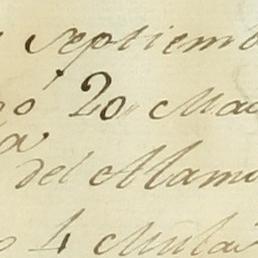 septiemb
20 Mac
del Alam
4 Mula